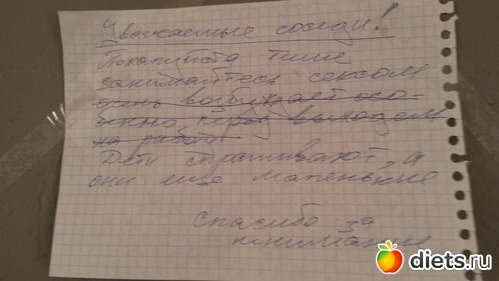 Уважаемые соседи!
Пожалуйста тише
занимайтесь сексом
очень возбуждает осо-
бенно перед выходом
на работу
Дети спрашивают, а
они еще маленькие
спасибо за
понимание
diets.ru